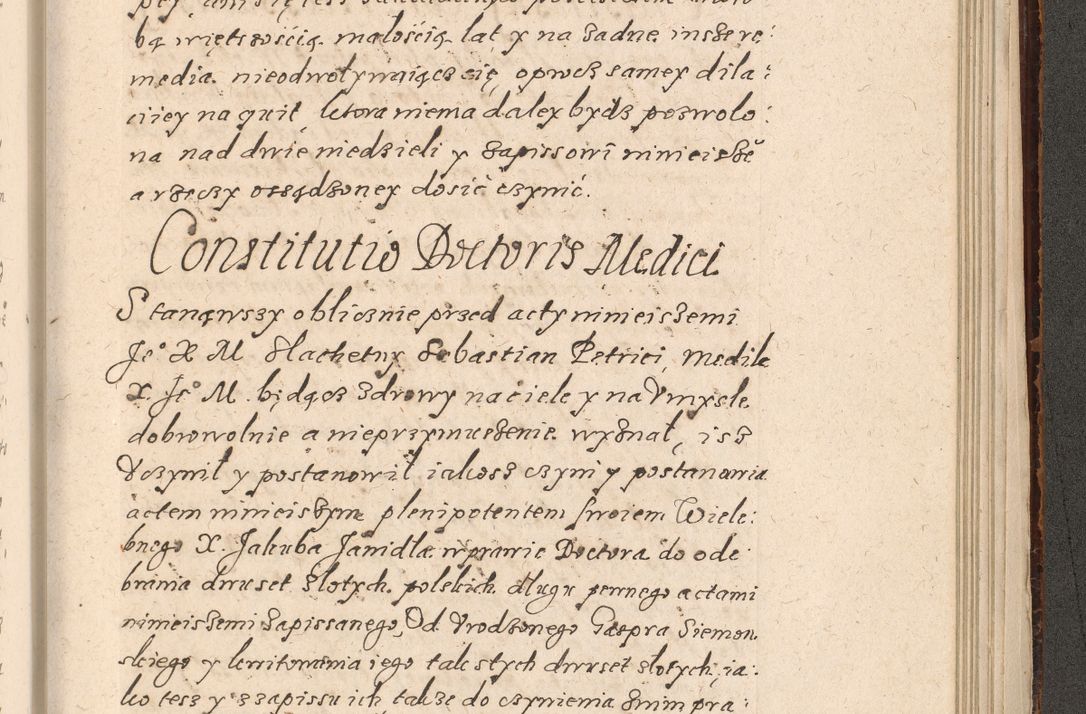 bą więtszością małością lat y na żadne insze re:
media nieodwoływaiącz się, oprócz samey dila:
ciiey na quit ktora niema daley bydz pozwolo:
na nad dwie niedzieli y zapissowi ninieiszē
a rzeczy osządzoney dosić czynić.
Constitutio Doctoris Medici
Stanąwszy oblicznie przed acty ninieiszemi
Je° X M Slachetny Sebastian Petrici, Medik
X. Je° M. będącz zdrowy na ciele y na Vmysle
dobrowolnie a nieprzymuszenie wyznał, isz
Vczynił y postanowił iakosz czyni y postanawia
actem ninieiszym plenipotentem swoiem Wiele:
bnego X. Jakuba Janidla w prawie Doctora do ode
brania dwuset złotych polskich długu pewnego actami
ninieiszemi zapissanego, Od Vrodzonego Gaspra Siemon
skiego y kwitowania iego tak stych dwuset złotych, ia:
ko tesz y z zapissu ich także do czynienia znim pra: